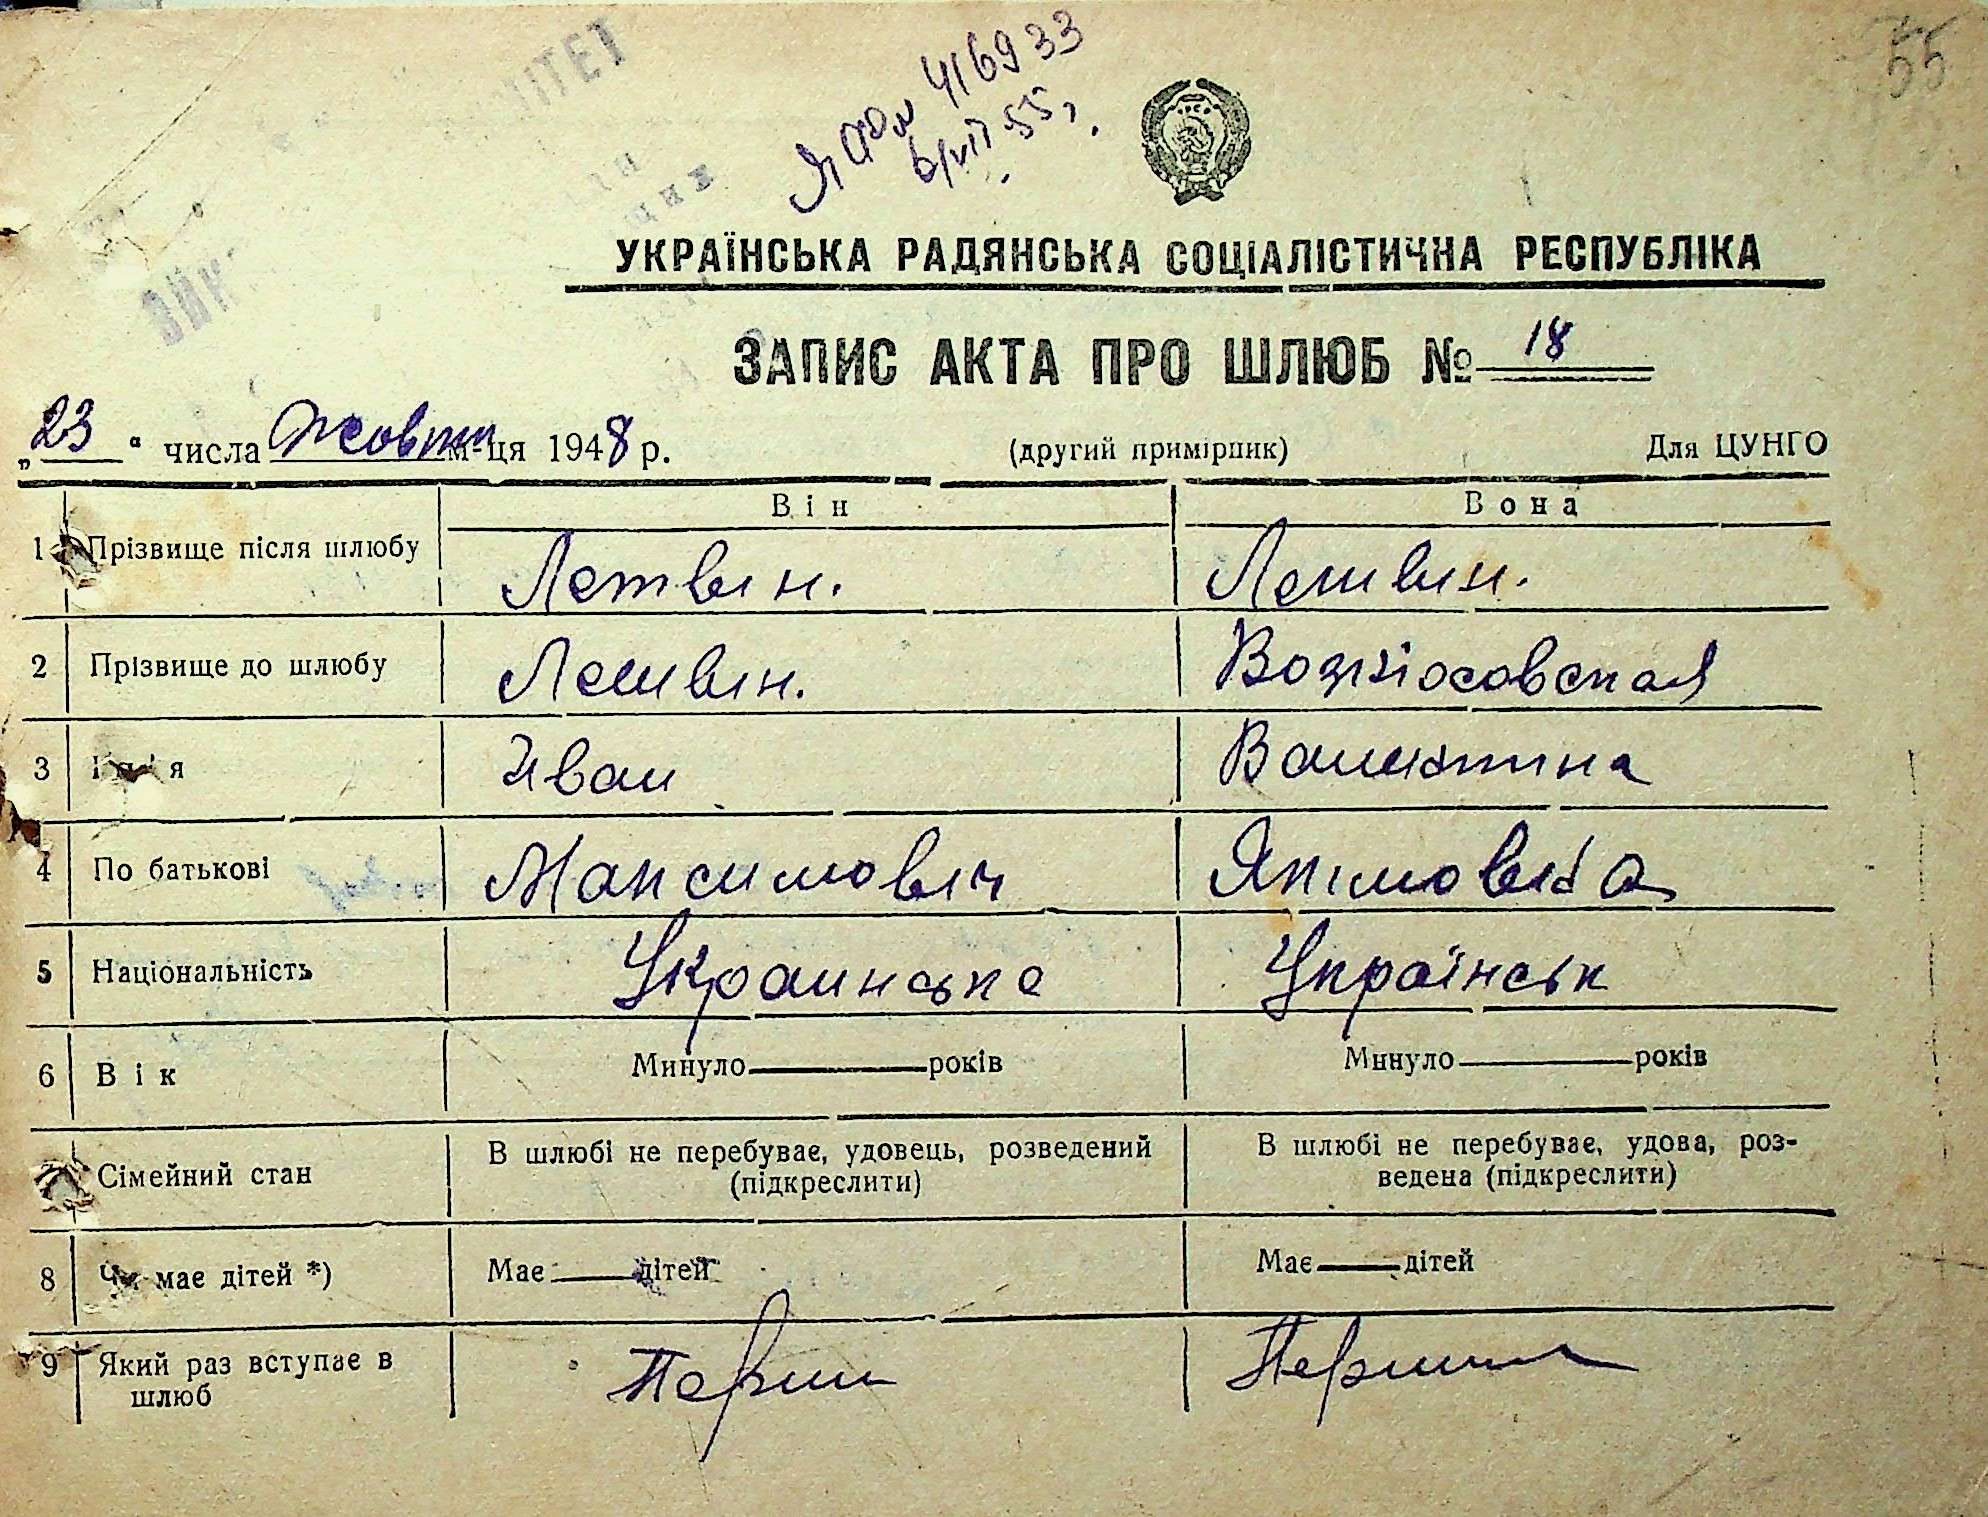 55
ЯЮ № 416933
6/VII 55 г.
УКРАЇНСЬКА РАДЯНСЬКА СОЦІАЛІСТИЧНА РЕСПУБЛІКА
ЗАПИС АКТА ПРО ШЛЮБ № 18
„23“ числа Жовтн м-ця 1948 р. (другий примірник) Для ЦУНГО
Він Вона
1 Прізвище після шлюбу Летвин. Летвин.
2 Прізвище до шлюбу Летвин. Возніосовская
3 Ім'я Иван Валентина
4 По батькові Максимович Якимовна
5 Національність Украинське Українськ
6 Вік Минуло років Минуло років
7 Сімейний стан В шлюбі не перебуває, удовець, розведений (підкреслити) В шлюбі не перебуває, удова, роз-
ведена (підкреслити)
8 Чи має дітей *) Має дітей Має дітей
9 Який раз вступає в
шлюб Перши Перший